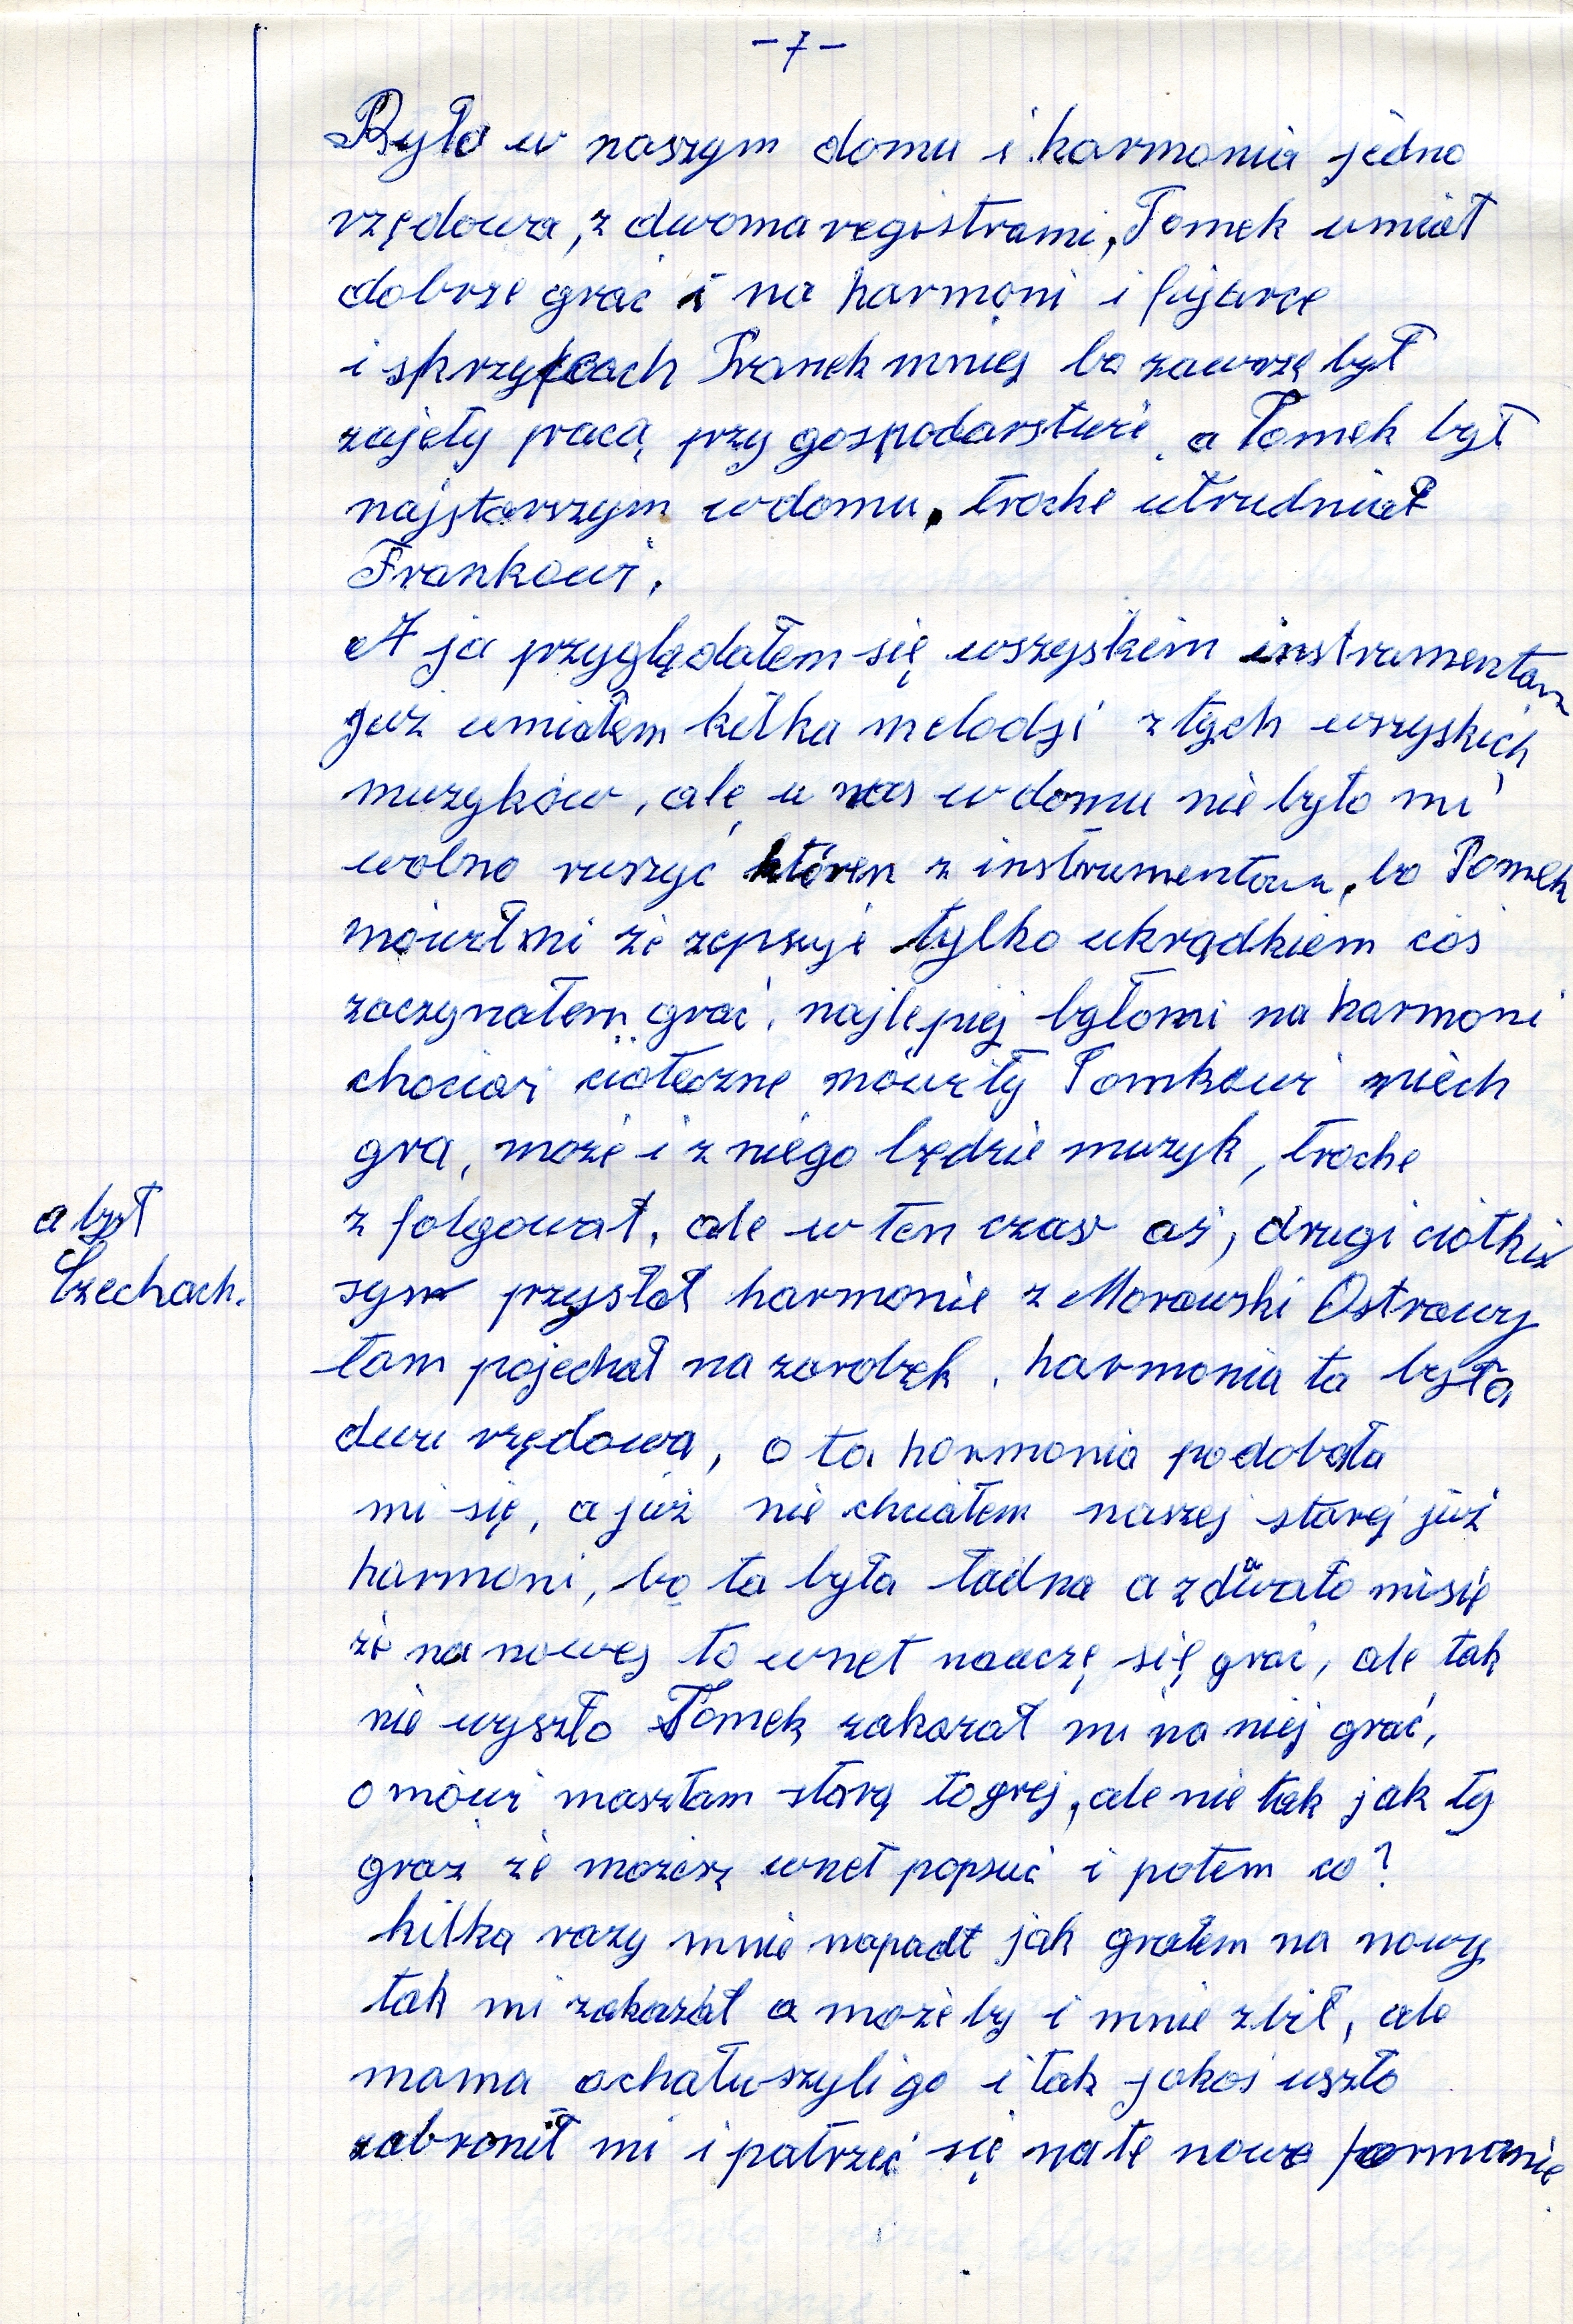 - 7 -
Była w naszym domu i harmonia jedno
rzędowa, z dwoma registrami, Tomek umiał
dobrze grać i na harmoni i fujarce
i skrzypcach Franek mniej bo zawsze był
zajęty pracą przy gospodarstwie, a Tomek był
najstarszym w domu, troche utrudniał
Frankowi.
A ja przyglądałem się wszyskim instrumentam
już umiałem kilka melodji z tych wszyskich
muzyków, ale u nas w domu nie było mi
wolno ruszyć któren z instrumentów, bo Tomek
mówił mi że zepsuje tylko ukradkiem coś
zaczynałem grać, najlepiej było mi na harmoni
chociaż cioteczne mówiły Tomkowi niech
gra, może i z niego będzie muzyk, troche
z folgował, ale w ten czas aż, drugi ciotki
a był
Czechach.
syn przysłał harmonie z Morawski Ostrawy
tam pojechał na zarobek, harmonia ta była
dwu rzędowa, o ta harmonia podobała
mi się, a już nie chciałem naszej starej już
harmoni, bo ta była ładna a zdawało mi się
że na nowej to wnet nauczę się grać, ale tak
nie wyszło Tomek zakazał mi na niej grać,
o mówi masz tam starą to grej, ale nie tak jak ty
grasz że możesz wnet popsuć i potem co?
kilka razy mnie napadł jak grałem na nowy
tak mi zakazał a może by i mnie zbił, ale
mama ochałuszyli go i tak jakoś uszło
zabronił mi i patrzeć się na te nowe harmonie.